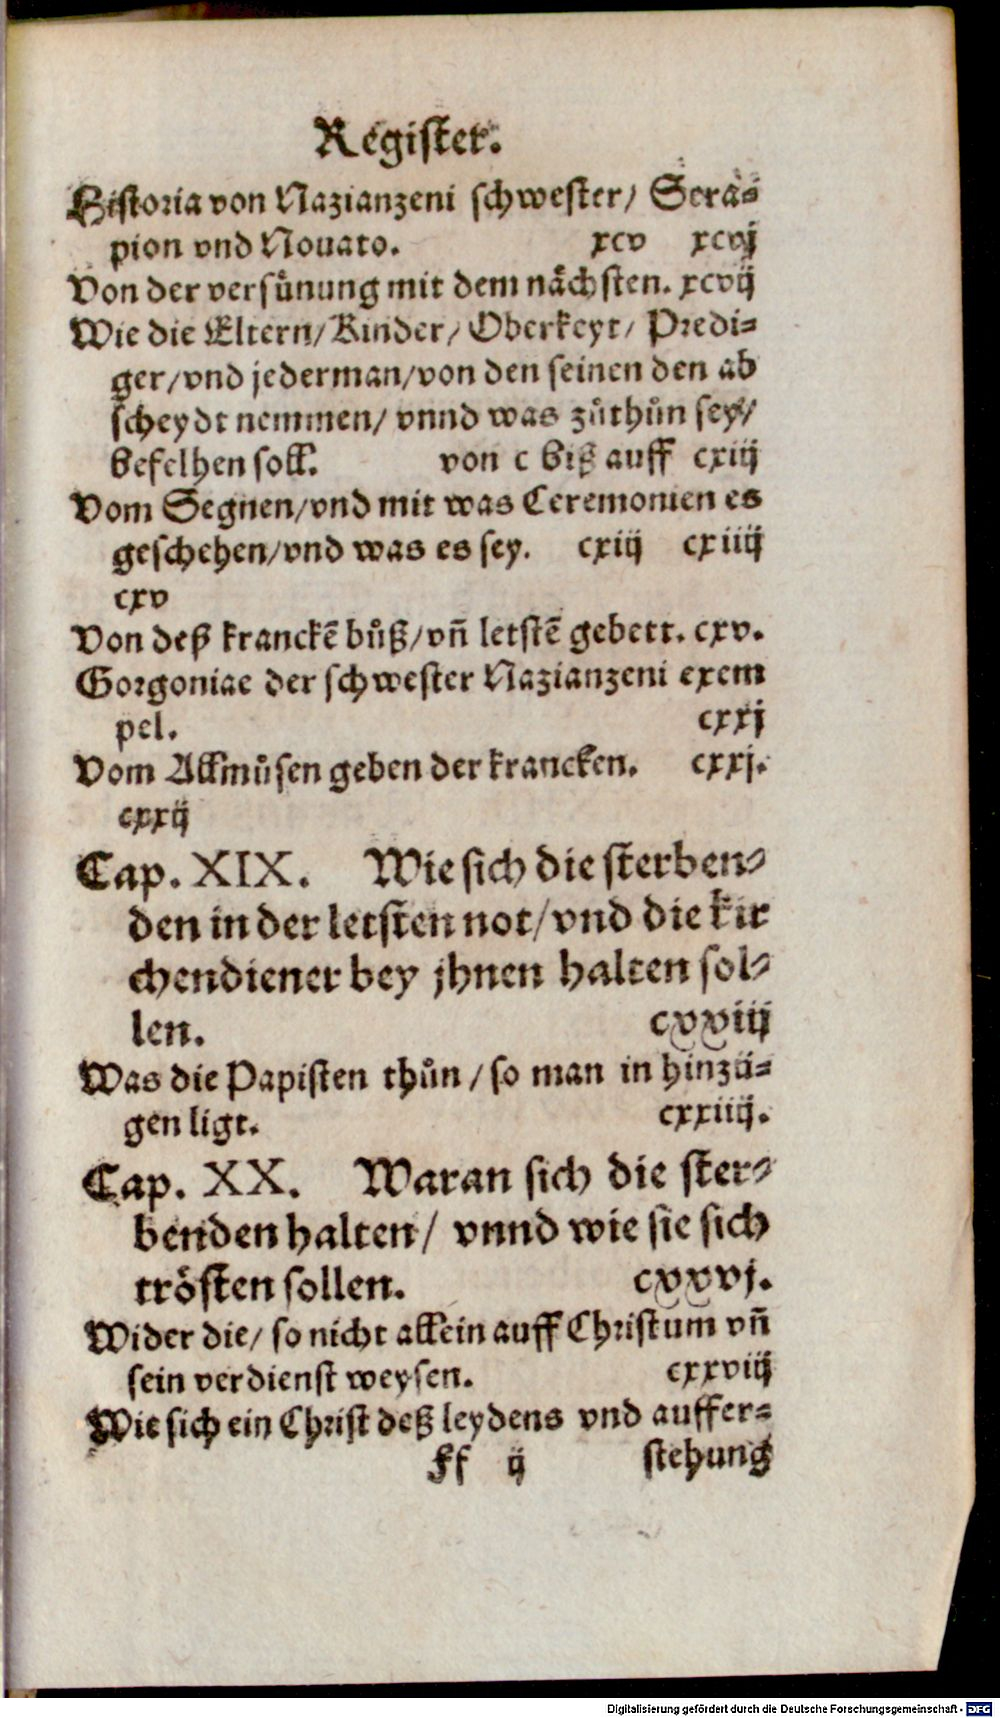 Register.
Historia von Nazianzeni schwester/ Sera-
pion vnd Nouato. xcv xcvj
Von der versůnung mit dem nåchsten. xcvij
Wie die Eltern/ Kinder/ Oberkeyt/ Predi-
ger/vnd jederman/von den seinen den ab
scheydt nemmen/ vnnd was zůthůn sey/
befelhen soll. von c biß auff cxiij
Vom Segnen/vnd mit was Ceremonien es
geschehen/vnd was es sey. cxiij cxiiij
cxv
Von deß kranckē bůß/vñ letstē gebett. cxv.
Gorgoniae der schwester Nazianzeni exem
pel. cxxj
Vom Allmůsen geben der krancken. cxxj.
cxxij
Cap. XIX. Wie sich die sterben-
den in der letsten not/vnd die kir
chendiener bey jhnen halten sol-
len. cxxiij
Was die Papisten thůn / so man in hinzü-
gen ligt. cxxiiij.
Cap. XX. Waran sich die ster-
benden halten/ vnnd wie sie sich
trösten sollen. cxxvj.
Wider die/ so nicht allein auff Christum vñ
sein verdienst weysen. cxxviij
Wie sich ein Christ deß leydens vnd auffer-
ff ij stehung
Digitalisierung gefördert durch die Deutsche Forschungsgemeinschaft - DFG